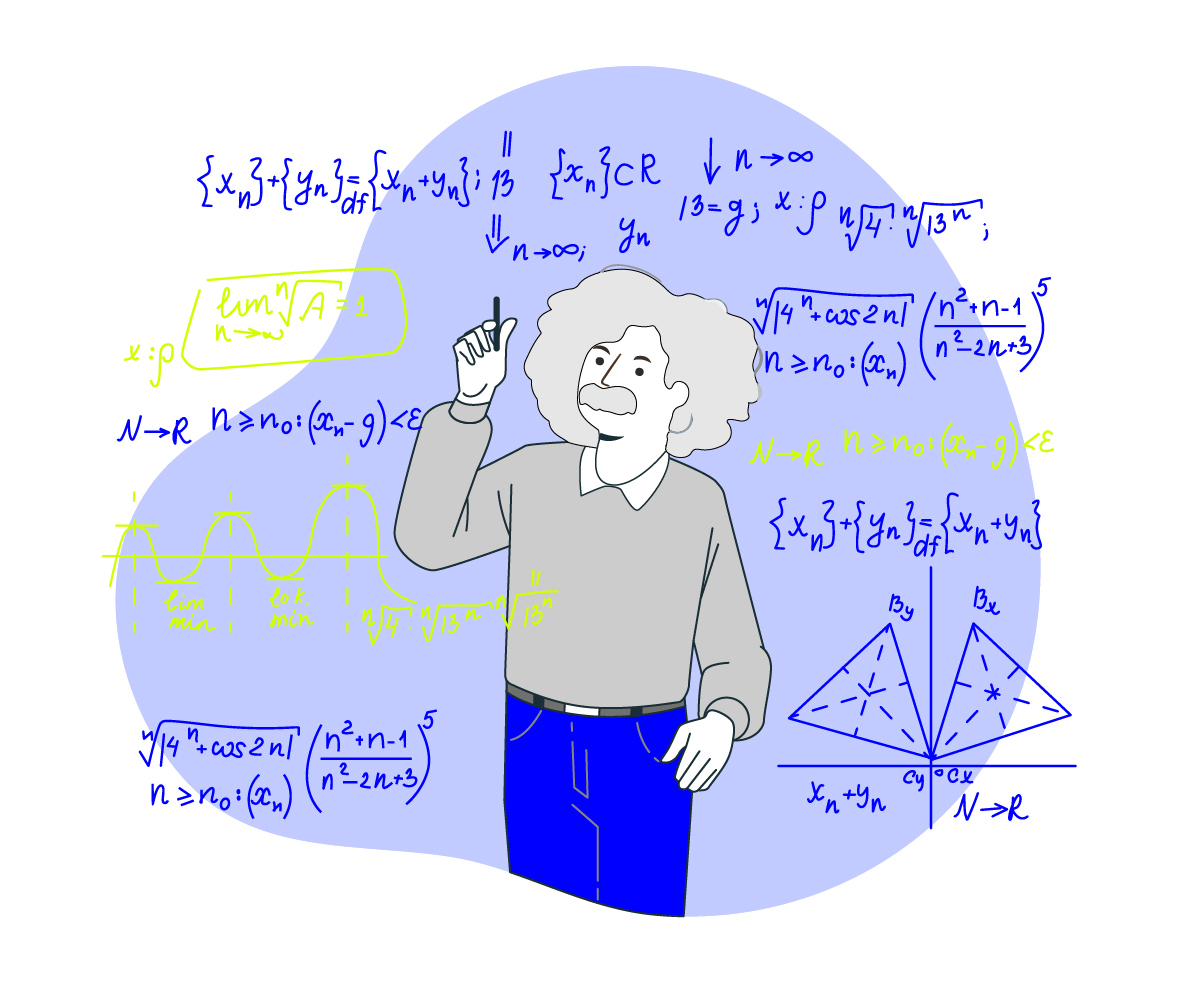 {xₙ}+{yₙ}=df{xₙ+yₙ}; 13
{xₙ}⊂R
n→∞
13=g; x:ρ ⁿ√4· ⁿ√13ⁿ;
n→∞;
yₙ
lim n→∞ ⁿ√A=1
x:ρ
ⁿ√|4ⁿ+cos2n| ((n²+n-1)/(n²-2n+3))⁵
n≥n₀:(xₙ)
N→R n≥n₀:(xₙ-g)<ε
N→R n≥n₀:(xₙ-g)<ε
{xₙ}+{yₙ}=df{xₙ+yₙ}
lim min
lok. min
ⁿ√4· ⁿ√13ⁿ ⁿ√13ⁿ
By
Bx
Cy
Cx
xₙ+yₙ
N→R
ⁿ√|4ⁿ+cos2n| ((n²+n-1)/(n²-2n+3))⁵
n≥n₀:(xₙ)